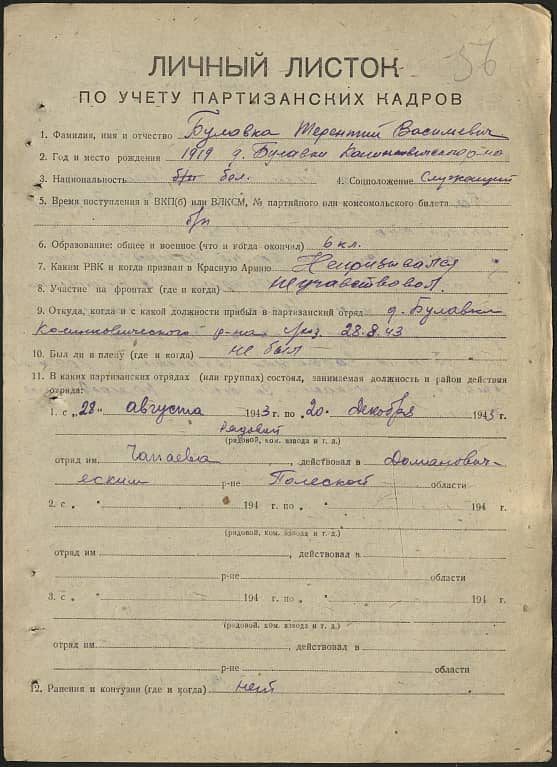 56
ЛИЧНЫЙ ЛИСТОК
ПО УЧЕТУ ПАРТИЗАНСКИХ КАДРОВ
1. Фамилия, имя и отчество Булавка Терентий Васильевич
2. Год и место рождения 1919 д. Булавки Калинковического р-на
3. Национальность б/п бел. 4. Соцположение Служащий
5. Время поступления в ВКП(б) или ВЛКСМ, № партийного или комсомольского билета
б/п
6. Образование: общее и военное (что и когда окончил) 6 кл.
7. Каким РВК и когда призван в Красную Армию Непризывался
8. Участие на фронтах (где и когда) неучавствовал.
9. Откуда, когда и с какой должности прибыл в партизанский отряд д. Булавки
Калинковического р-на 28.8.43
10. Был ли в плену (где и когда) не был
11. В каких партизанских отрядах (или группах) состоял, занимаемая должность и район действия
отряда:
1. с „28“ августа 1943 г. по „20„ декабря 1943 г.
Рядовой
(рядовой, ком. взвода и т. д.)
отряд им. Чапаева, действовал в Доманович-
еским р-не Полесской области
2. с „ “ 194 г. по „ “ 194 г.
(рядовой, ком. взвода и т. д.)
отряд им. , действовал в
р-не области
3. с „ “ 194 г. по „ “ 194 г.
(рядовой, ком. взвода и т. д.)
отряд им. , действовал в
р-не области
12. Ранения и контузии (где и когда) нет